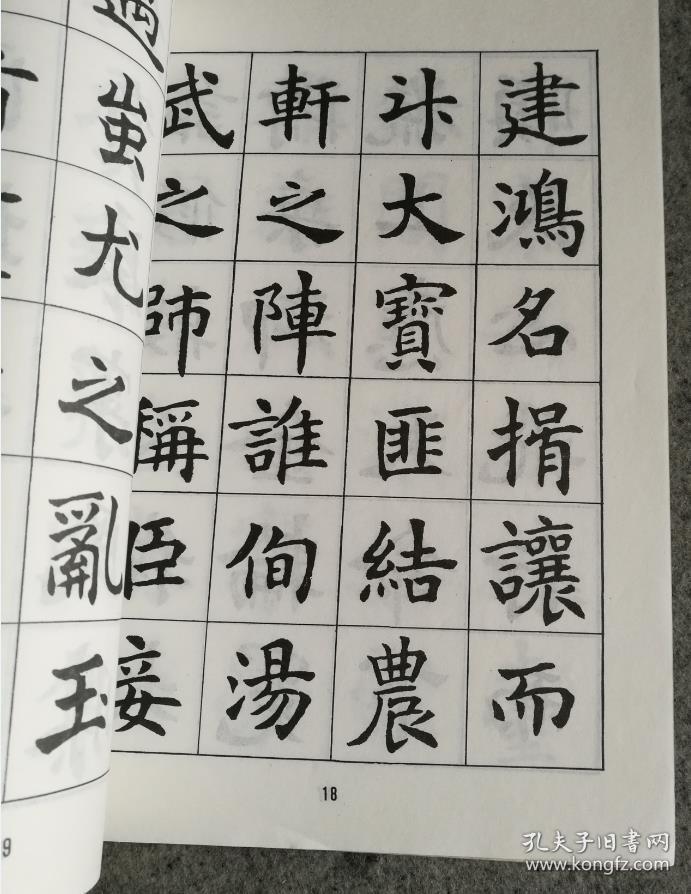 建鴻名揖讓而
升大寶匪結農
軒之陣誰侚湯
武之師稱臣接
蚩尤之亂玉
18
9
孔夫子旧书网
www.kongfz.com